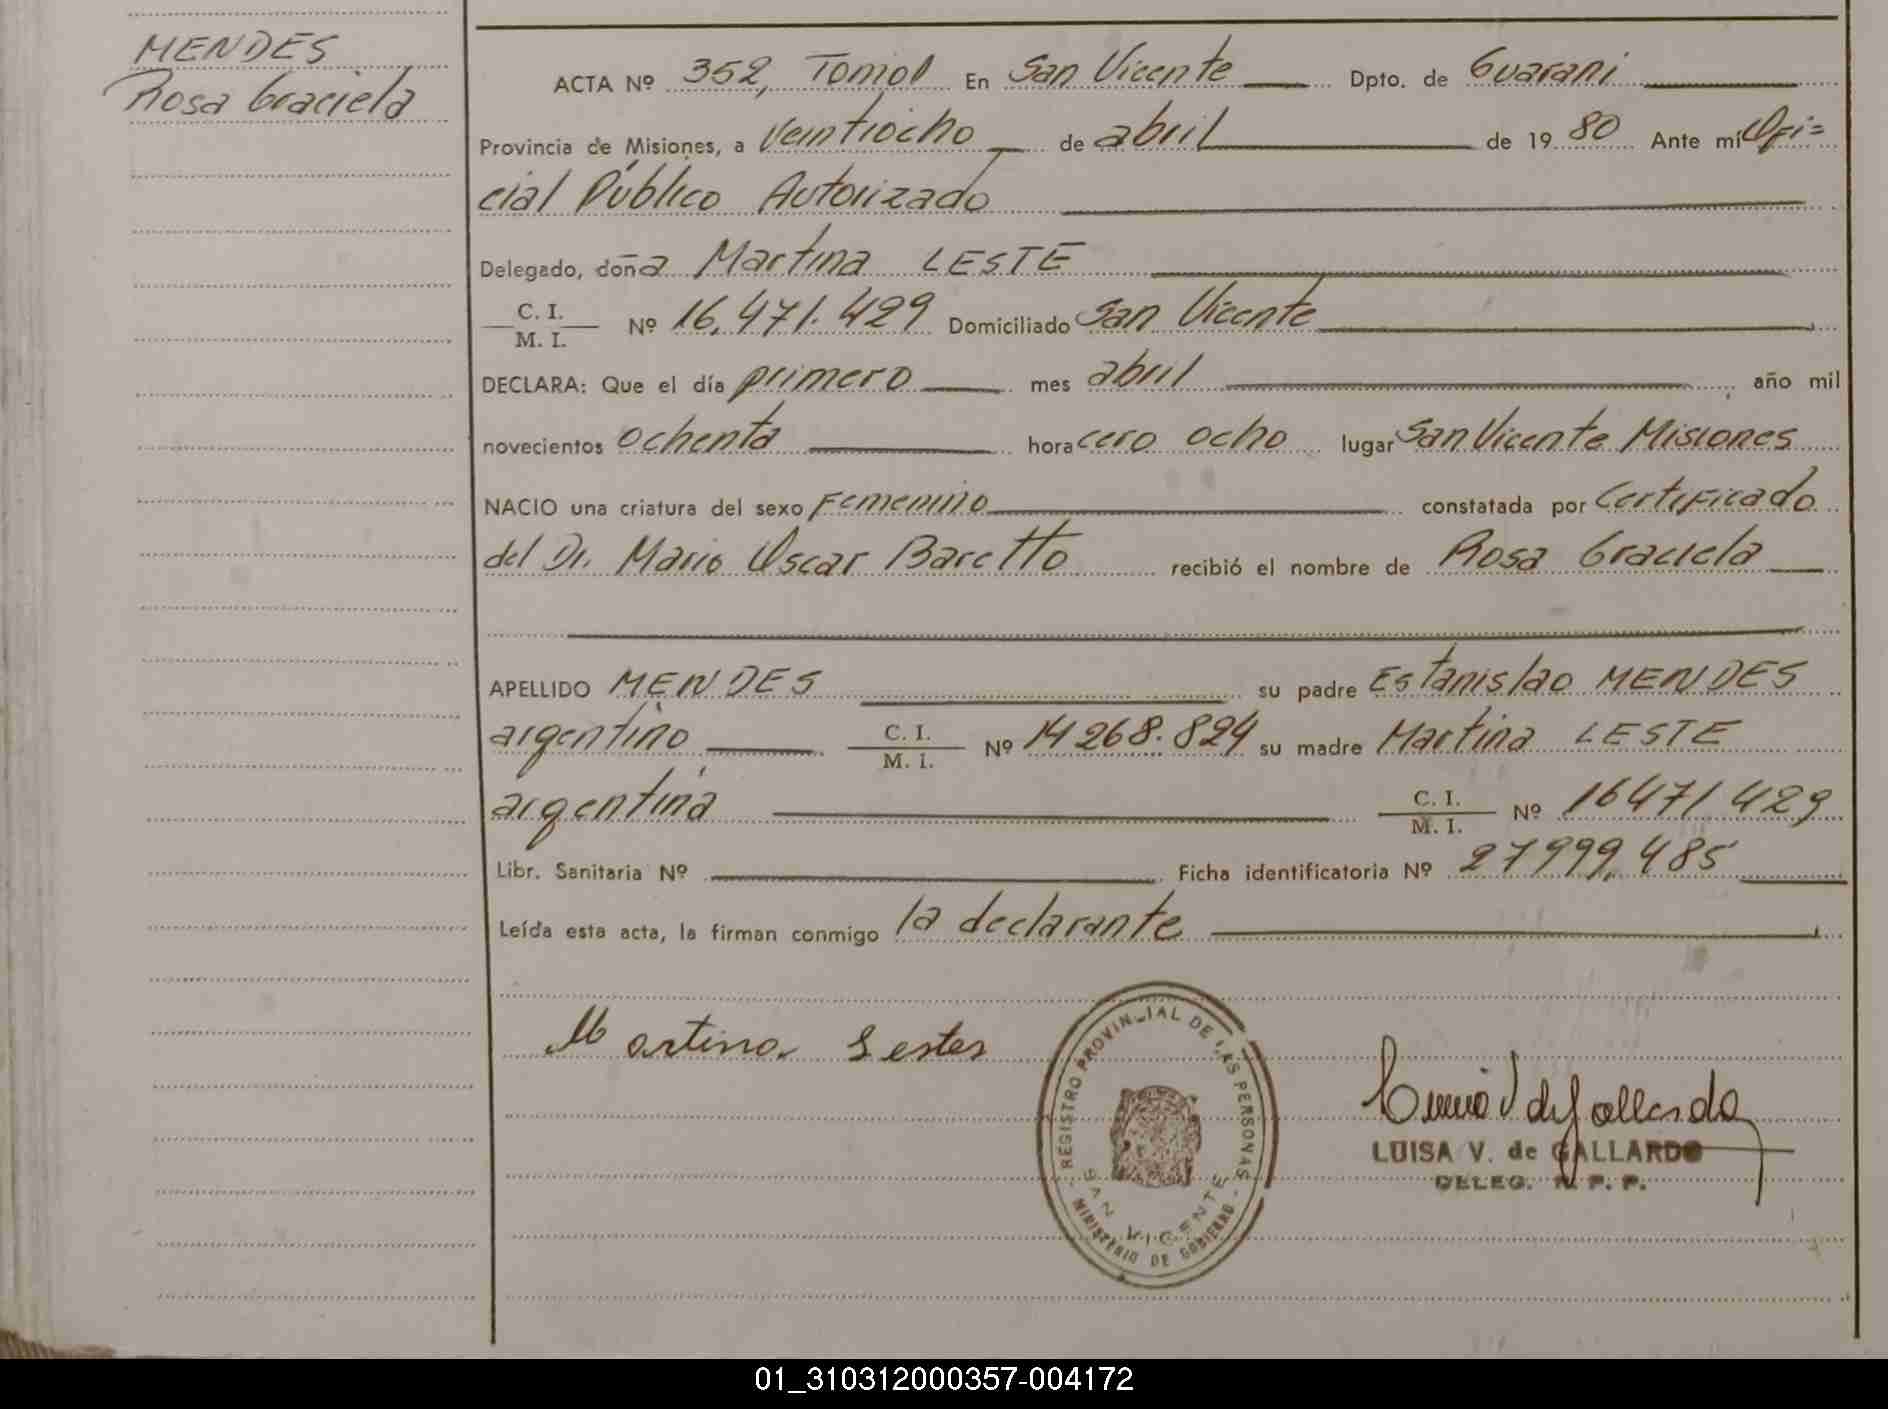 MENDES
Rosa Graciela
ACTA Nº 352, Tomo I En San Vicente Dpto. de Guarani
Provincia de Misiones, a Veintiocho de abril de 1980 Ante mí Ofi=
cial Público Autorizado
Delegado, doña Martina LESTE
C. I.
M. I. Nº 16.471.429 Domiciliado San Vicente
DECLARA: Que el día primero mes abril año mil
novecientos ochenta hora cero ocho lugar San Vicente Misiones
NACIO una criatura del sexo Femenino constatada por Certificado
del Dr. Mario Oscar Baretto recibió el nombre de Rosa Graciela
APELLIDO MENDES su padre Estanislao MENDES
argentino C. I.
M. I. Nº 14268.824 su madre Martina LESTE
argentina C. I.
M. I. Nº 16471429
Libr. Sanitaria Nº Ficha identificatoria Nº 27999.485
Leída esta acta, la firman conmigo la declarante
Martina Lestes
REGISTRO PROVINCIAL DE LAS PERSONAS
SAN VICENTE
MINISTERIO DE GOBIERNO
LUISA V. de GALLARDO
DELEG. R. P. P.
01_310312000357-004172